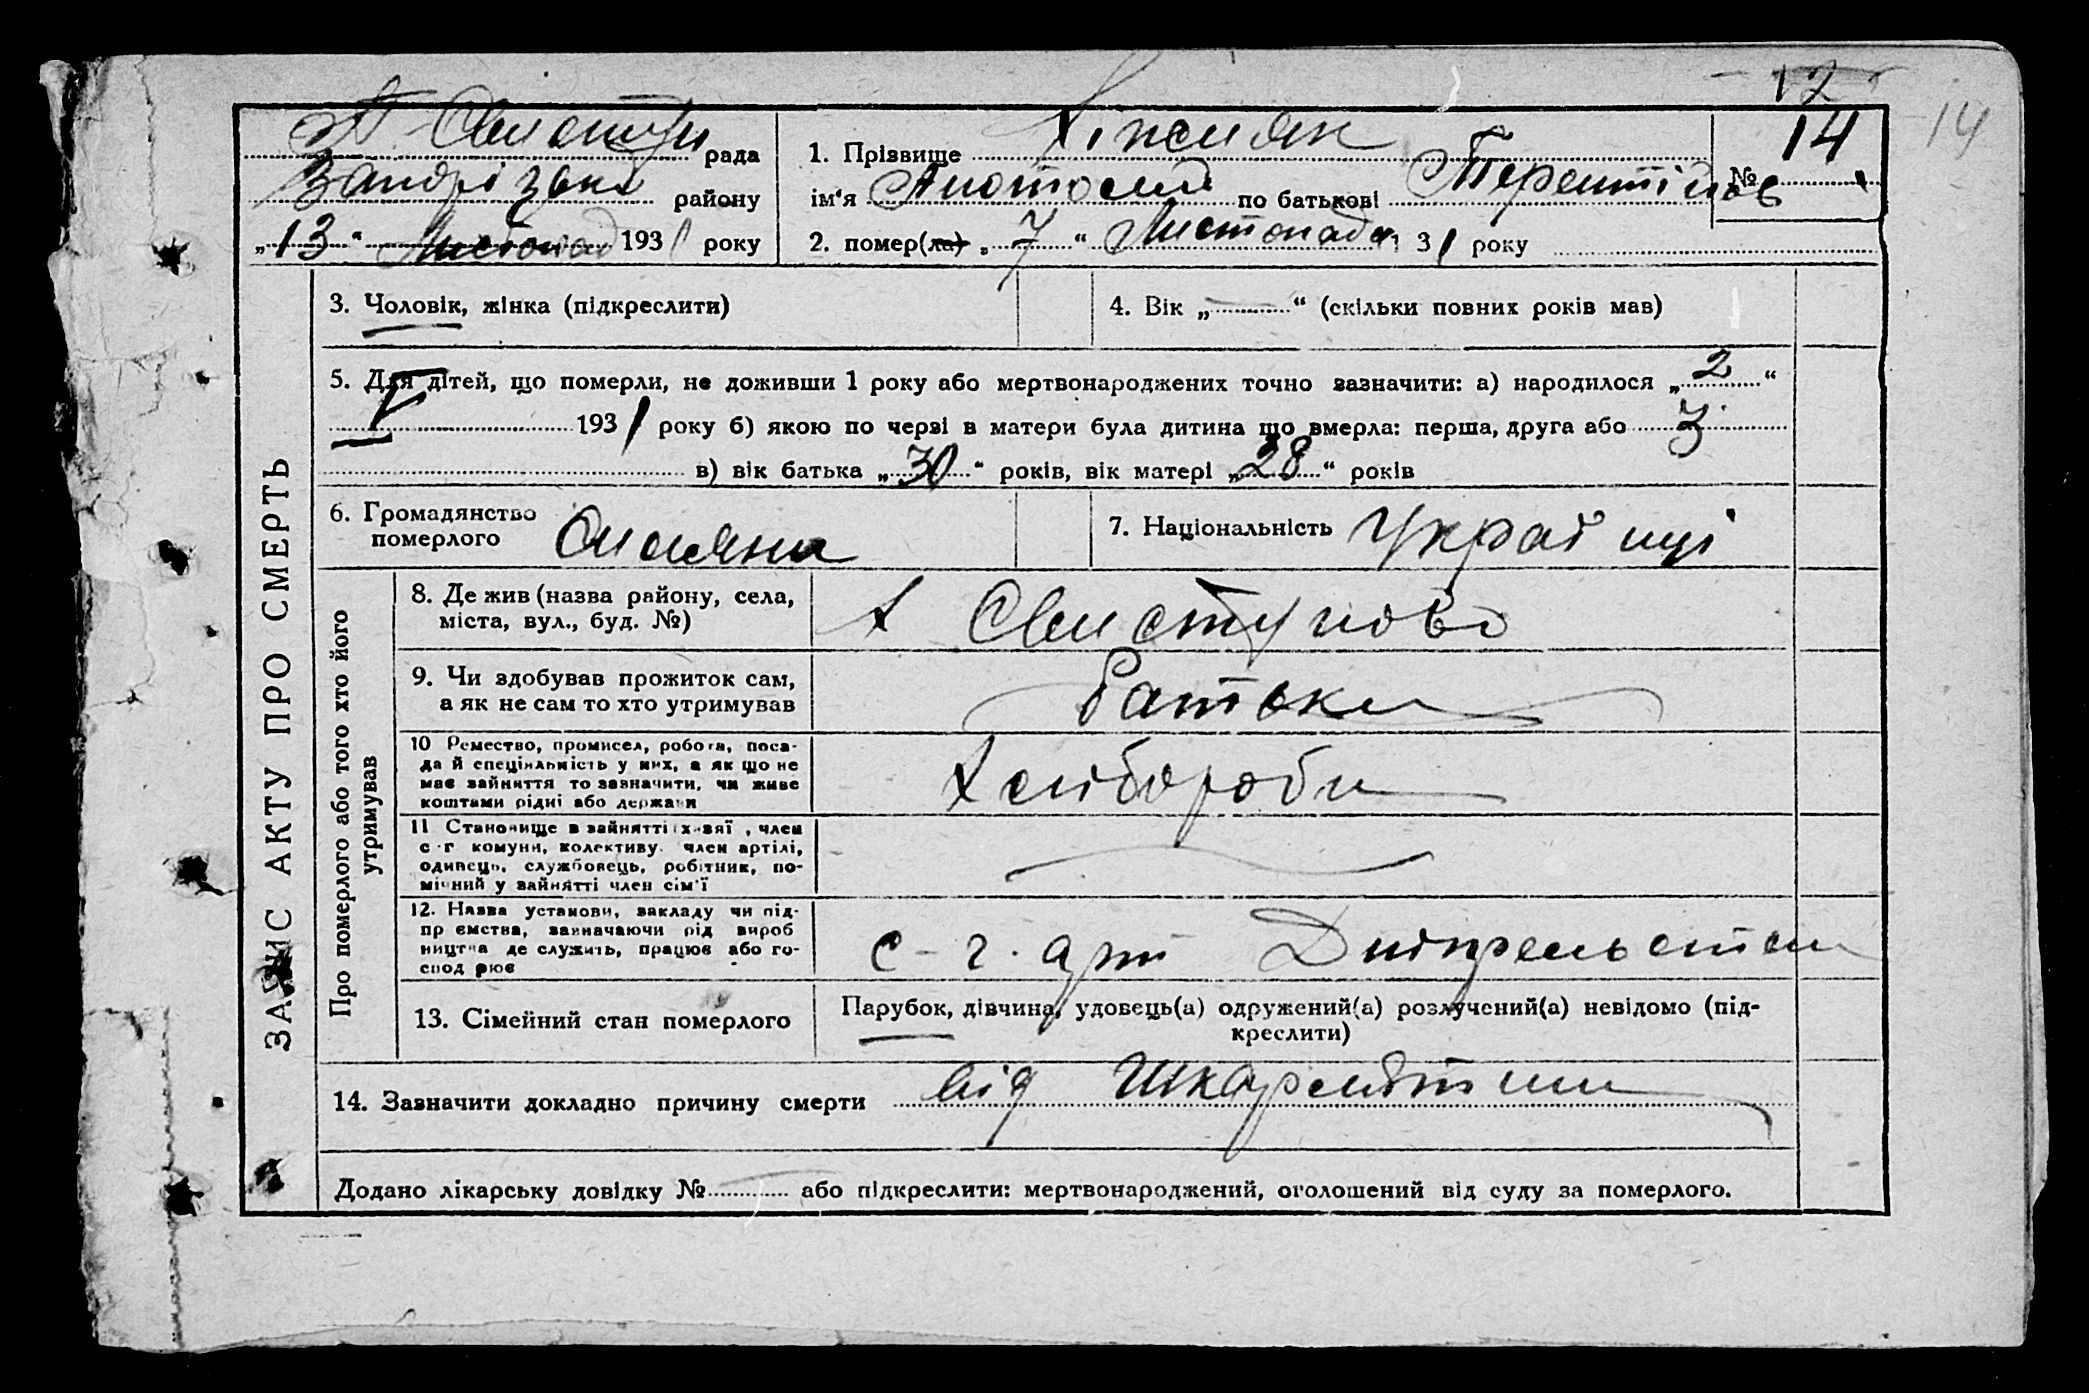 12
14
14
А Свистун рада
Запорізька району
„13“ Листопад 1931 року
1. Прізвище Хіжняк
ім'я Анотолий по батькові Терентійов №
2. помер(ла) „7“ Листопада 31 року
3. Чоловік, жінка (підкреслити)
4. Вік „—“ (скільки повних років мав)
5. Для дітей, що померли, не доживши 1 року або мертвонароджених точно зазначити: а) народилося „2“
V 1931 року б) якою по черзі в матери була дитина що вмерла: перша, друга або 3
в) вік батька „30“ років, вік матері „28“ років
6. Громадянство
померлого
Силяни
7. Національність Українці
ЗАПИС АКТУ ПРО СМЕРТЬ
Про померлого або того хто його
утримував
8. Де жив (назва району, села,
міста, вул., буд. №)
х Свистуново
9. Чи здобував прожиток сам,
а як не сам то хто утримував
батьки
10 Ремество, промисел, робота, поса-
да й спеціяльність у них, а як що не
має зайняття то зазначити, чи живе
коштами рідні або держави
Хлібороби
11 Становище в зайнятті: хазяї, член
с-г комуни, колективу, член артілі,
одинець, службовець, робітник, по-
мічний у зайнятті член сім'ї
12. Назва установи, закладу чи під-
пр ємства, зазначаючи рід вироб
ництва де служить, працює або го-
спод рює
с-г. арт Дніпрельстан
13. Сімейний стан померлого
Парубок, дівчина, удовець(а) одружений(а) розлучений(а) невідомо (під-
креслити)
14. Зазначити докладно причину смерти від Шкарлятини
Додано лікарську довідку № або підкреслити: мертвонароджений, оголошений від суду за померлого.